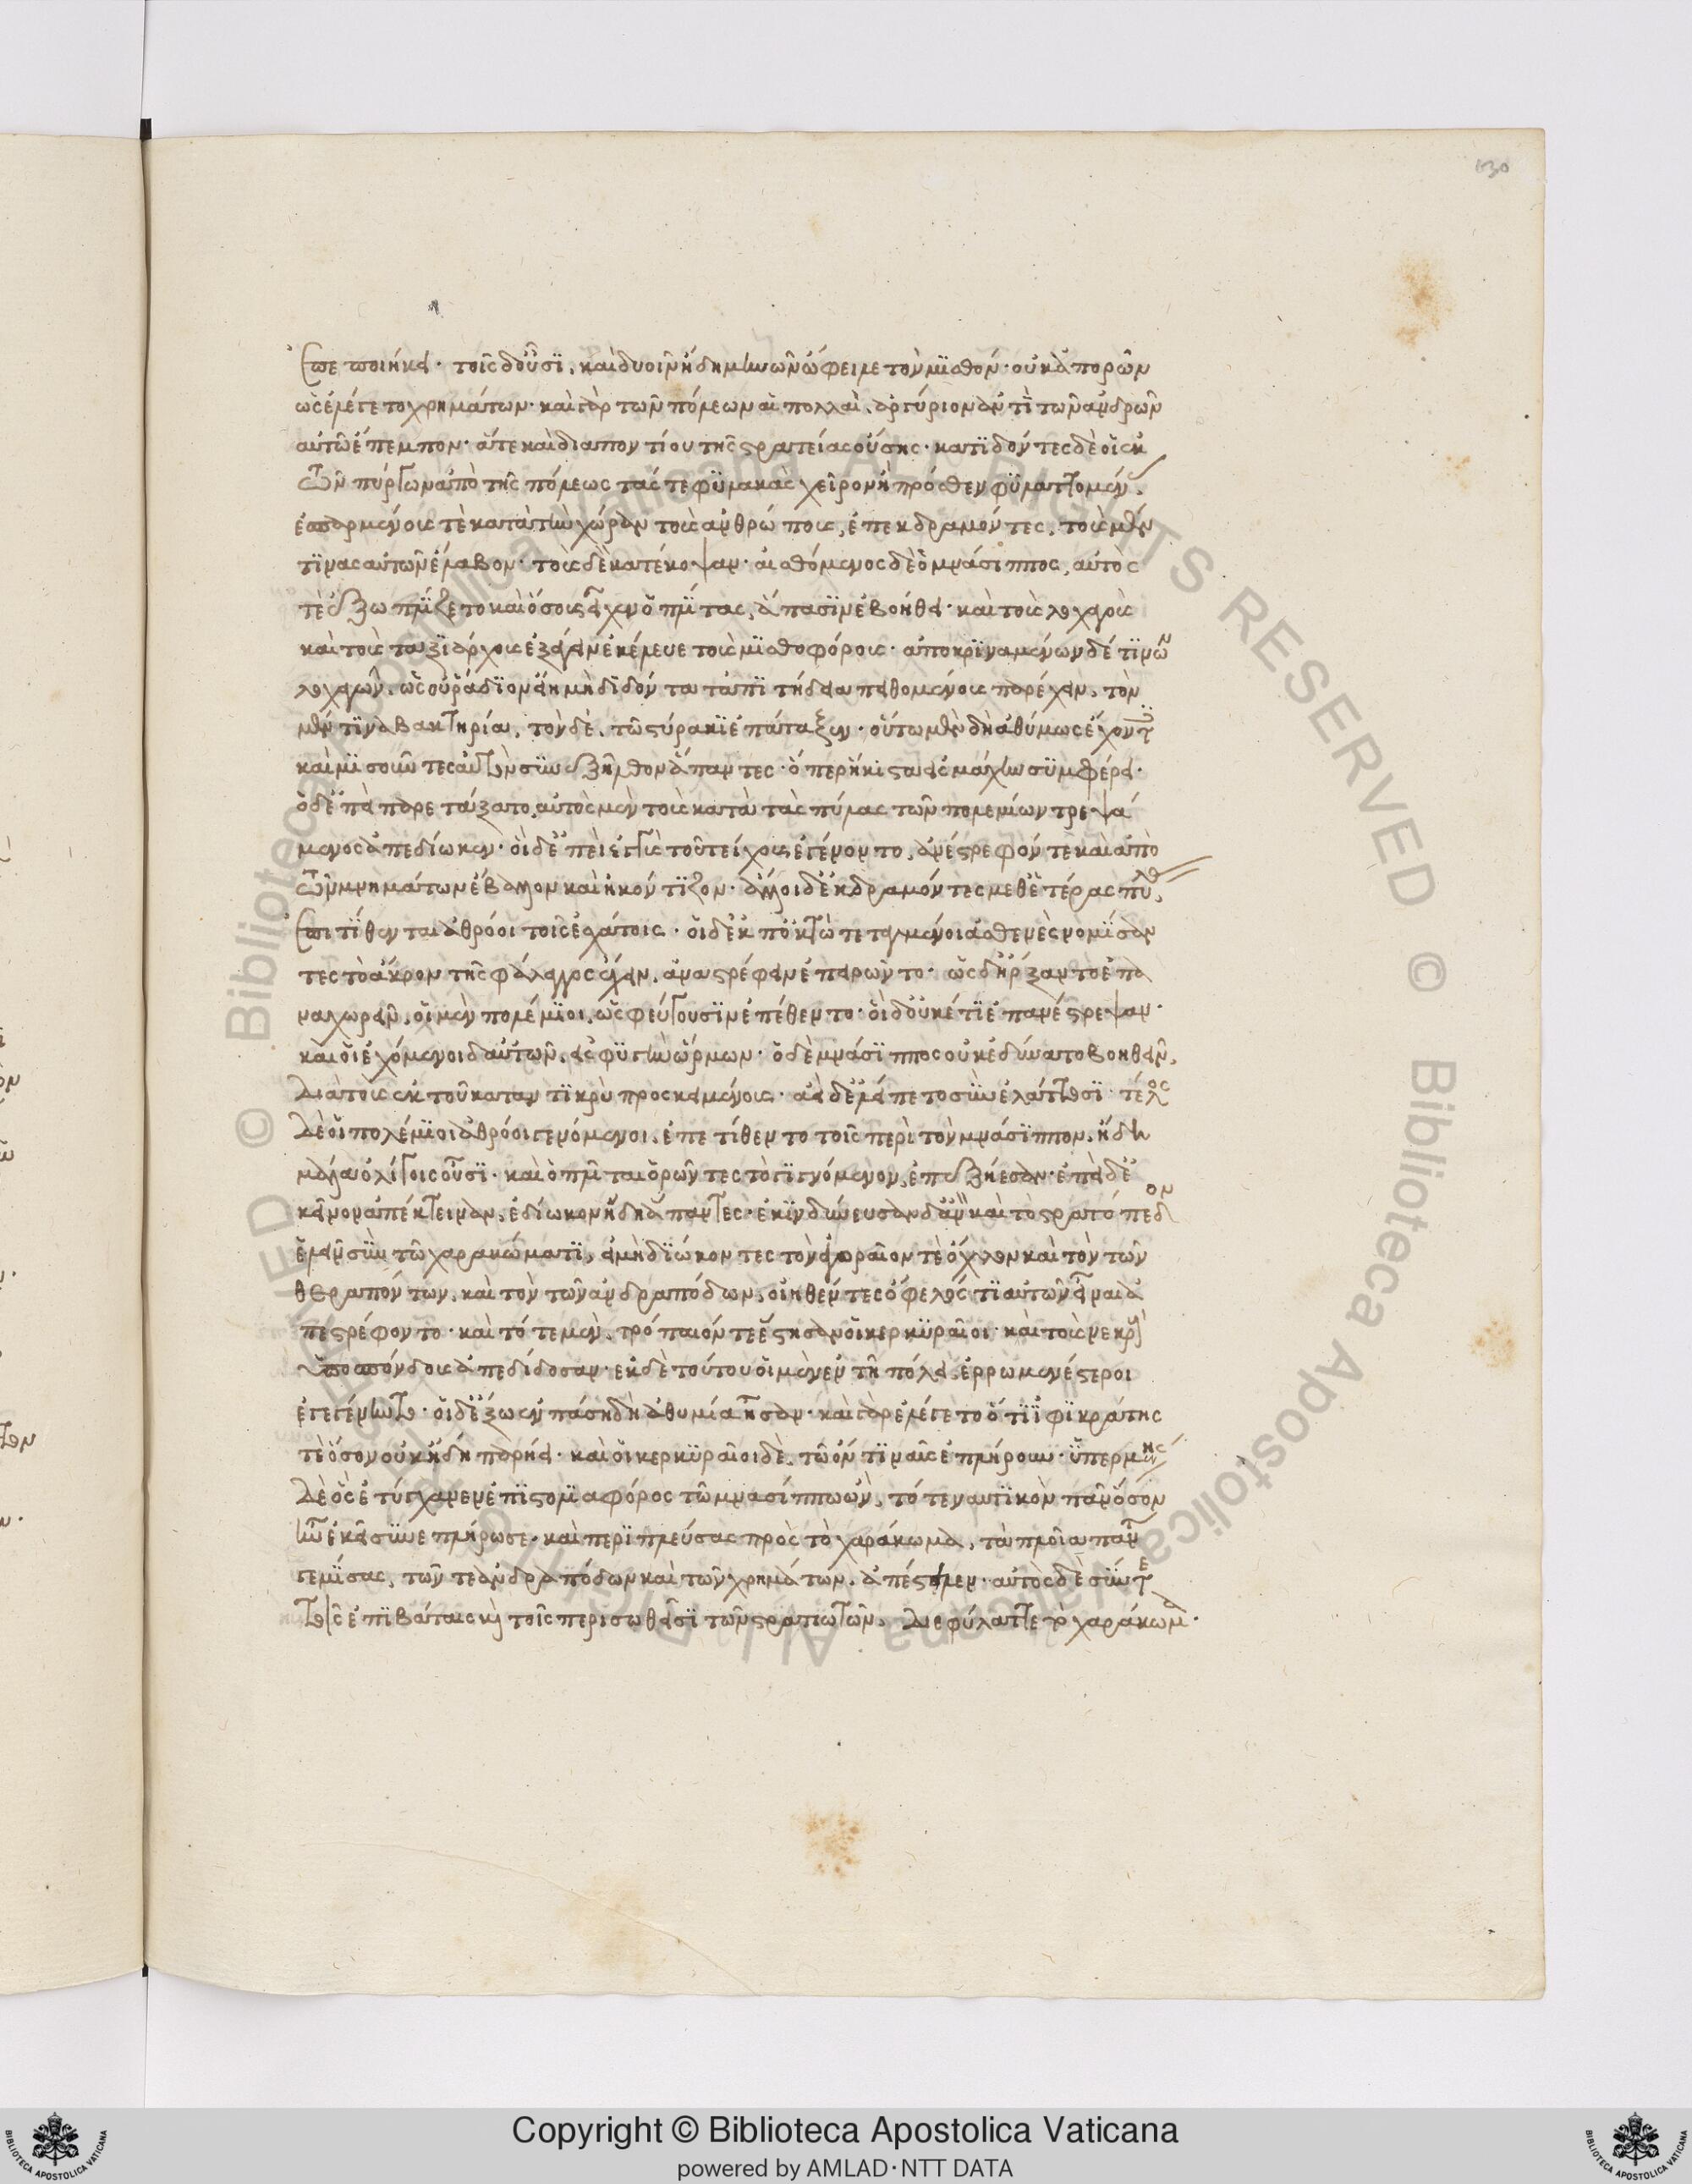 130
ἐπεποιήκει· τοῖς δ' οὖσι, καὶ δυοῖν ἤδη μηνῶν ὤφειλε τὸν μισθόν· οὐκ ἀπορῶν
ὡς ἐλέγετο χρημάτων· καὶ γὰρ τῶν πόλεων αἱ πολλαὶ, ἀργύριον ἀντὶ τῶν ἀνδρῶν
αὐτῶ ἔπεμπον· ἅτε καὶ διαποντίου τῆς στρατείας οὔσης· κατιδόντες δὲ οἱ ἐκ
τῶν πύργων ἀπὸ τῆς πόλεως τάς τε φυλακὰς χεῖρον ἢ πρόσθεν φυλαττομέν
ἐσπαρμένους τὲ κατὰ τὴν χώραν τοὺς ἀνθρώπους, ἐπεκδραμόντες, τοὺς μέν
τινας αὐτῶν ἔλαβον· τοὺς δὲ κατέκοψαν· αἰσθόμενος δὲ ὁ μνάσιππος, αὐτός
τὲ ἐξωπλίζετο καὶ ὅσους εἶχεν ὁπλίτας, ἅπασιν ἐβοήθει· καὶ τοὺς λοχαγοὺς
καὶ τοὺς ταξιάρχους ἐξάγειν ἐκέλευε τοὺς μισθοφόρους· ἀποκριναμένων δέ τινων
λοχαγῶν, ὡς οὐ ῥάδιον εἴη μὴ διδόντα τἀπιτήδεια πειθομένους παρέχειν, τὸν
μέν τινα βακτηρία, τὸν δὲ, τῶ στύρακι ἐπάταξεν· οὕτω μὲν δὴ ἀθύμως ἔχοντες
καὶ μισοῦντες αὐτὸν συνεξῆλθον ἅπαντες· ὅπερ ἥκιστα εἰς μάχην συμφέρει·
ὁ δ' ἐπεὶ παρετάξατο, αὐτὸς μὲν τοὺς κατὰ τὰς πύλας τῶν πολεμίων τρεψά
μενος ἀπεδίωκεν· οἱ δ' ἐπεὶ ἐγγὺς τοῦ τείχους ἐγένοντο, ἀνέστρεφόν τε καὶ ἀπὸ
τῶν μνημάτων ἔβαλλον καὶ ἠκόντιζον· ἄλλοι δ' ἐκδραμόντες μεθ' ἑτέρας πύλας
ἐπιτίθενται ἀθρόοι τοῖς ἐσχάτοις· οἱ δ' ἐπ' ὀκτὼ τεταγμένοι ἀσθενὲς νομίσαν
τες τὸ ἄκρον τῆς φάλαγγος ἔχειν, ἀναστρέφειν ἐπειρῶντο· ὡς δ' ἤρξαντο ἐπα
ναχωρεῖν, οἱ μὲν πολέμιοι, ὡς φεύγουσιν ἐπέθεντο· οἱ δ' οὐκέτι ἐπανέστρεψαν·
καὶ οἱ ἐχόμενοι δ' αὐτῶν, εἰς φυγὴν ὥρμων· ὁ δὲ μνάσιππος οὐκ ἐδύνατο βοηθεῖν,
διὰ τοὺς ἐκ τοῦ καταντικρὺ προσκειμένους· ἀεὶ δ' ἐλείπετο σὺν ἐλάττοσι· τέλος
δὲ οἱ πολέμιοι ἀθρόοι γενόμενοι, ἐπετίθεντο τοῖς περὶ τὸν μνάσιππον, ἤδη
μάλα ὀλίγοις οὖσι· καὶ ὁπλῖται ὁρῶντες τὸ γιγνόμενον, ἐπεξήεσαν· ἐπεὶ δ'
ἐκεῖνον ἀπέκτειναν, ἐδίωκον ἤδη ἅπαντες· ἐκινδύνευσαν δ' ἂν καὶ τὸ στρατόπεδον
ἑλεῖν σὺν τῶ χαρακώματι, εἰ μὴ διώκοντες τὸν ἀγοραῖον τὲ ὄχλον καὶ τὸν τῶν
θεραπόντων, καὶ τὸν τῶν ἀνδραπόδων, οἰηθέντες ὄφελός τι αὐτῶν εἶναι ἀ
πεστρέφοντο· καὶ τότε μὲν, τρόπαιόν τε ἔστησαν οἱ κερκυραῖοι· καὶ τοὺς νεκροὺς
ὑποσπόνδους ἀπεδίδοσαν· ἐκ δὲ τούτου οἱ μὲν ἐν τῆ πόλει, ἐρρωμενέστεροι
ἐγεγένηντο· οἱ δ' ἔξω ἐν πάση δὴ ἀθυμία ἦσαν· καὶ γὰρ ἐλέγετο ὅτι ἰφικράτης
τὲ ὅσον οὐκ ἤδη παρείη· καὶ οἱ κερκυραῖοι δὲ, τῶ ὄντι ναῦς ἐπλήρουν· ὑπερμένης
δὲ ὃς ἐτύγχανεν ἐπιστολιαφόρος τῶ μνασίππω ὤν, τό τε ναυτικὸν πᾶν ὅσον
ἦν ἐκεῖ συνεπλήρωσε· καὶ περιπλεύσας πρὸς τὸ χαράκωμα, τὰ πλοῖα πάντα
γεμίσας, τῶν τε ἀνδραπόδων καὶ τῶν χρημάτων, ἀπέστειλεν· αὐτὸς δὲ σύν τε
τοῖς ἐπιβάταις καὶ τοῖς περισωθεῖσι τῶν στρατιωτῶν, διεφύλαττε τὸ χαράκωμα·
Copyright © Biblioteca Apostolica Vaticana
powered by AMLAD·NTT DATA